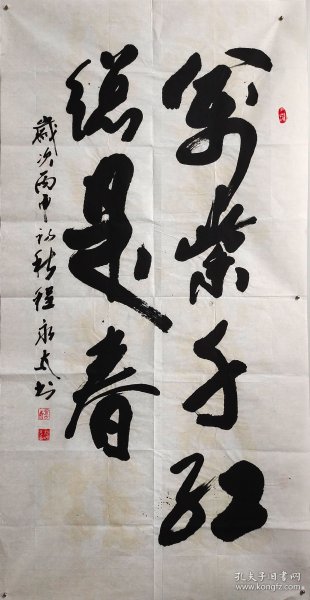 万紫千红
总是春
岁次丙申初秋程永氏书
孔夫子旧书网
www.kongfz.com